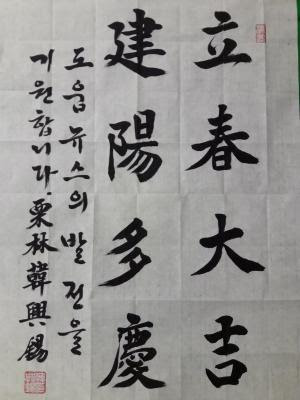 立春大吉
建陽多慶
도움뉴스의 발전을
기원합니다. 栗林 韓興錫